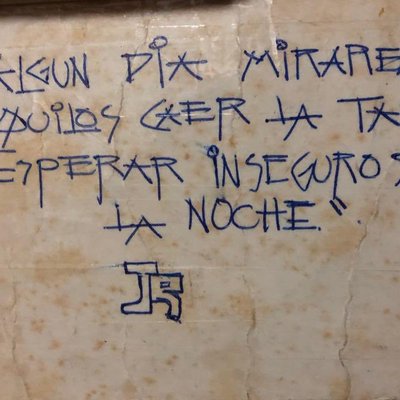 ALGUN DIA MIRARE
QUILOS CAER LA TA
ESPERAR INSEGUROS
LA NOCHE.”.
JR